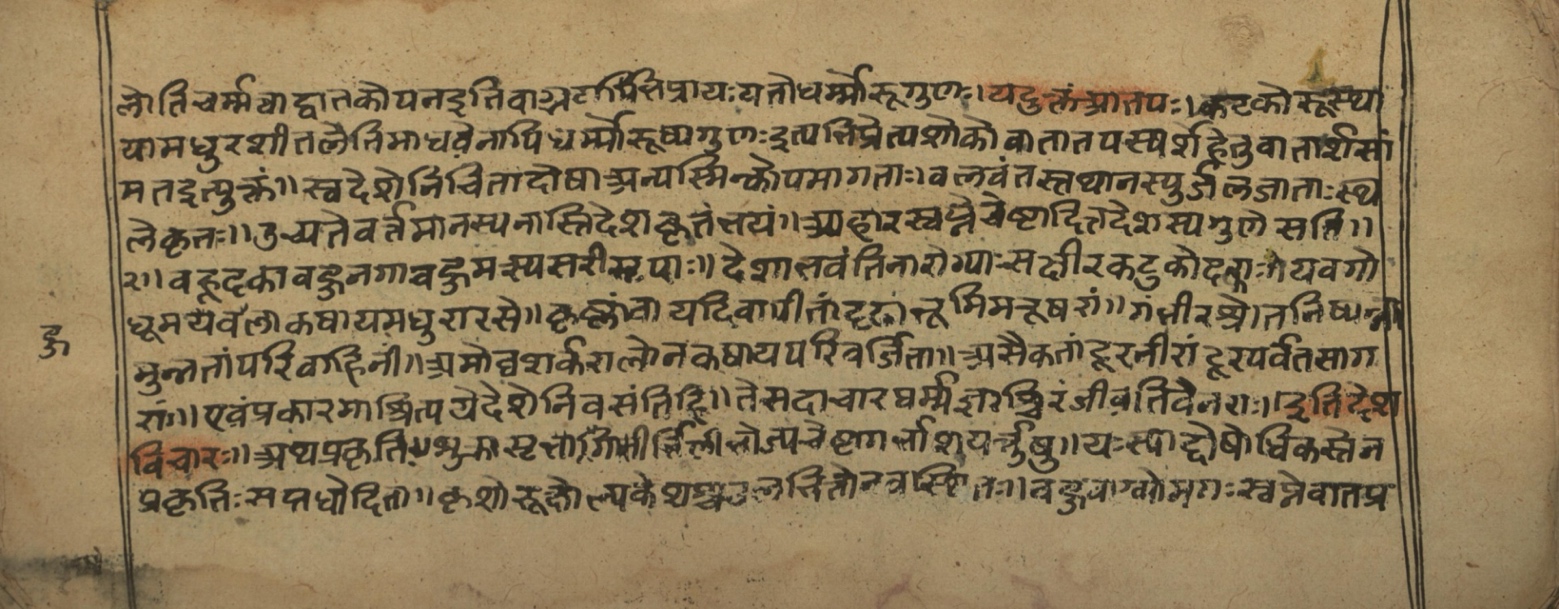 लोतिचर्म्मवाद्वातकोपनइतिवा प्रायःयतोधर्म्मोरूगुणः।यदुक्तंआतपः।कटुकोरूस्था
यामधुरशीतलेतिमाधवेनापिधर्म्मोरूष्यगुणःइत्यत्तिप्रेत्यशोकोवातातपस्पर्शहेतुवातार्शसां
मतइत्युक्तं॥स्वदेशेनिचितादोषाअन्यस्मिन्कोपमागताः।बलवंतस्तथानस्युर्जलजाताःस्थ
लेकृतः॥उच्यतेवर्तमानस्यनास्तिदेशकृतंभयं॥आहारस्वप्नचेष्टादितद्देशस्यगुणेसति॥
रा।वहूदकावङुनगावङुमस्यसरीसृपाः॥देशाभवंतिनारोग्याःसक्षीरकटुकोदकाःगोयवगो
धूमयेवला कषायमधुरारसे॥कृष्णांवायदिवापीतांदृढांभूमिमनूषरां॥गंभीर
मुन्नतांपरिवाहिनी॥अमोघशर्करालोनकषायपरिवर्जिता॥असैकतांदूरनीरांदूरपर्वतसाग
रां॥एवंप्रकारमाश्रित्ययेदेशेनिवसंतिहि॥तेसदाचारधर्म्मज्ञाश्चिरंजीवंतिवेनराः॥इतिदेश
विचारः॥अथप्रकृतिः॥शुक्रासृग्गर्भिणीभोज्यचेष्टागर्भाशयर्त्तुषु॥यःस्याद्दोषोधिकस्तेन
प्रकृतिःसप्तधोदिता॥कृशोरूक्षोल्पकेशश्च वङुवाग्व्योमगःस्वप्नेवातप्र
ङ्ग